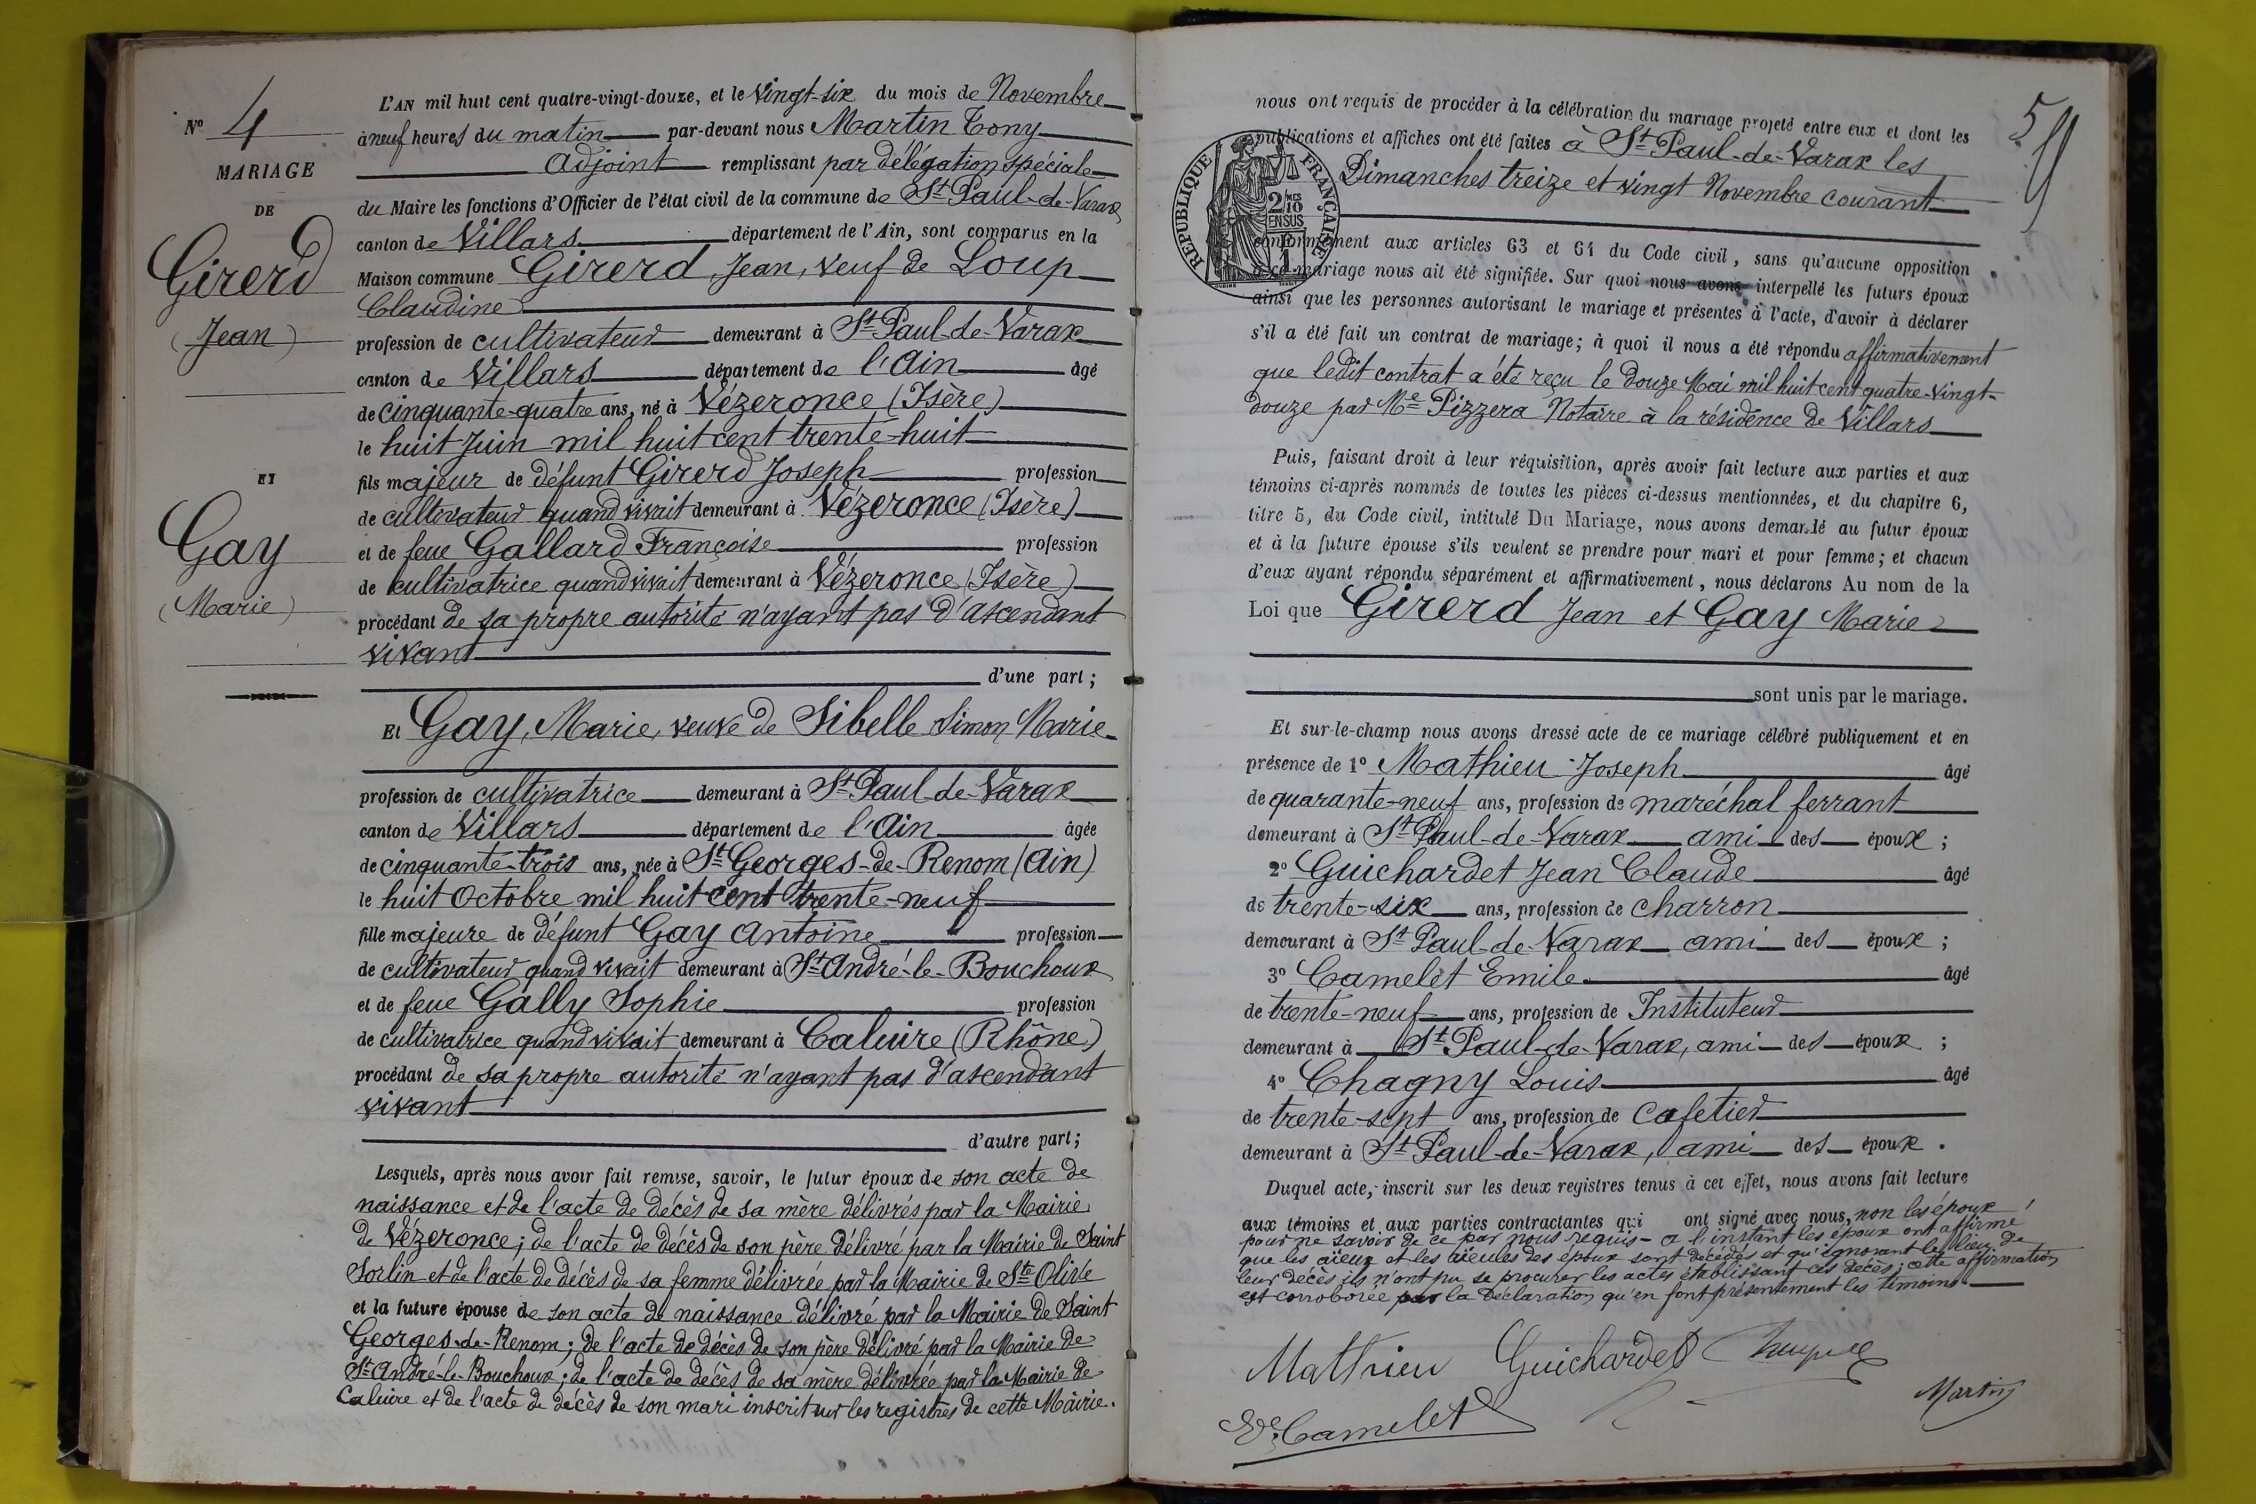 Nº 4
MARIAGE
DE
Girerd
(Jean)
ET
Gay
(Marie)
L'AN mil huit cent quatre-vingt-douze, et le Vingt-six du mois de Novembre
à neuf heures du matin par-devant nous Martin Tony
Adjoint remplissant par délégation spéciale
du Maire les fonctions d'Officier de l'état civil de la commune de St Paul-de-Varax
canton de Villars département de l'Ain, sont comparus en la
Maison commune Girerd, Jean, veuf de Loup
Claudine
profession de cultivateur demeurant à St Paul-de-Varax
canton de Villars département de l'Ain âgé
de cinquante-quatre ans, né à Vézeronce (Isère)
le huit Juin mil huit cent trente-huit
fils majeur de défunt Girerd Joseph profession
de cultivateur quand vivait demeurant à Vézeronce (Isère)
et de feue Gallard Françoise profession
de cultivatrice quand vivait demeurant à Vézeronce (Isère)
procédant de sa propre autorité n'ayant pas d'ascendant
vivant
d'une part ;
Et Gay, Marie, veuve de Sibelle Simon Marie
profession de cultivatrice demeurant à St Paul-de-Varax
canton de Villars département de l'Ain âgée
de cinquante-trois ans, née à St Georges-de-Renom (Ain)
le huit Octobre mil huit cent trente-neuf
fille majeure de défunt Gay Antoine profession
de cultivateur quand vivait demeurant à St André-le-Bouchoux
et de feue Gally Sophie profession
de cultivatrice quand vivait demeurant à Caluire (Rhône)
procédant de sa propre autorité n'ayant pas d'ascendant
vivant
d'autre part ;
Lesquels, après nous avoir fait remise, savoir, le futur époux de son acte de
naissance et de l'acte de décès de sa mère délivrés par la Mairie
de Vézeronce ; de l'acte de décès de son père délivré par la Mairie de Saint
Sorlin et de l'acte de décès de sa femme délivrée par la Mairie de Ste Olive
et la future épouse de son acte de naissance délivré par la Mairie de Saint
Georges-de-Renom ; de l'acte de décès de son père délivré par la Mairie de
St André-le-Bouchoux ; de l'acte de décès de sa mère délivrée par la Mairie de
Caluire et de l'acte de décès de son mari inscrit sur les registres de cette Mairie.
5
nous ont requis de procéder à la célébration du mariage projeté entre eux et dont les
publications et affiches ont été faites à St Paul-de-Varax les
Dimanches treize et vingt Novembre courant
RÉPUBLIQUE FRANÇAISE
2/10 MES
EN SUS
conformément aux articles 63 et 64 du Code civil, sans qu'aucune opposition
à ce mariage nous ait été signifiée. Sur quoi nous avons interpellé les futurs époux
ainsi que les personnes autorisant le mariage et présentes à l'acte, d'avoir à déclarer
s'il a été fait un contrat de mariage ; à quoi il nous a été répondu affirmativement
que ledit contrat a été reçu le douze Mai mil huit cent quatre-vingt-
douze par Me Pizzera Notaire à la résidence de Villars
Puis, faisant droit à leur réquisition, après avoir fait lecture aux parties et aux
témoins ci-après nommés de toutes les pièces ci-dessus mentionnées, et du chapitre 6,
titre 5, du Code civil, intitulé Du Mariage, nous avons demandé au futur époux
et à la future épouse s'ils veulent se prendre pour mari et pour femme ; et chacun
d'eux ayant répondu séparément et affirmativement, nous déclarons Au nom de la
Loi que Girerd Jean et Gay Marie
sont unis par le mariage.
Et sur-le-champ nous avons dressé acte de ce mariage célébré publiquement et en
présence de 1º Mathieu Joseph âgé
de quarante-neuf ans, profession de maréchal ferrant
demeurant à St Paul-de-Varax ami des époux ;
2º Guichardet Jean Claude âgé
de trente-six ans, profession de charron
demeurant à St Paul-de-Varax ami des époux ;
3º Camelet Emile âgé
de trente-neuf ans, profession de Instituteur
demeurant à St Paul-de-Varax, ami des époux ;
4º Chagny Louis âgé
de trente-sept ans, profession de cafetier
demeurant à St Paul-de-Varax, ami des époux.
Duquel acte, inscrit sur les deux registres tenus à cet effet, nous avons fait lecture
aux témoins et aux parties contractantes qui ont signé avec nous, non les époux
pour ne savoir de ce par nous requis - a l'instant les époux ont affirmé
que les aïeux et les aïeules des époux sont décédés et qu'ignorant le lieu de
leur décès ils n'ont pu se procurer les actes établissant ces décès ; cette affirmation
est corroborée par la déclaration qu'en font présentement les témoins.
Mathieu Guichardet
Martin
Camelet